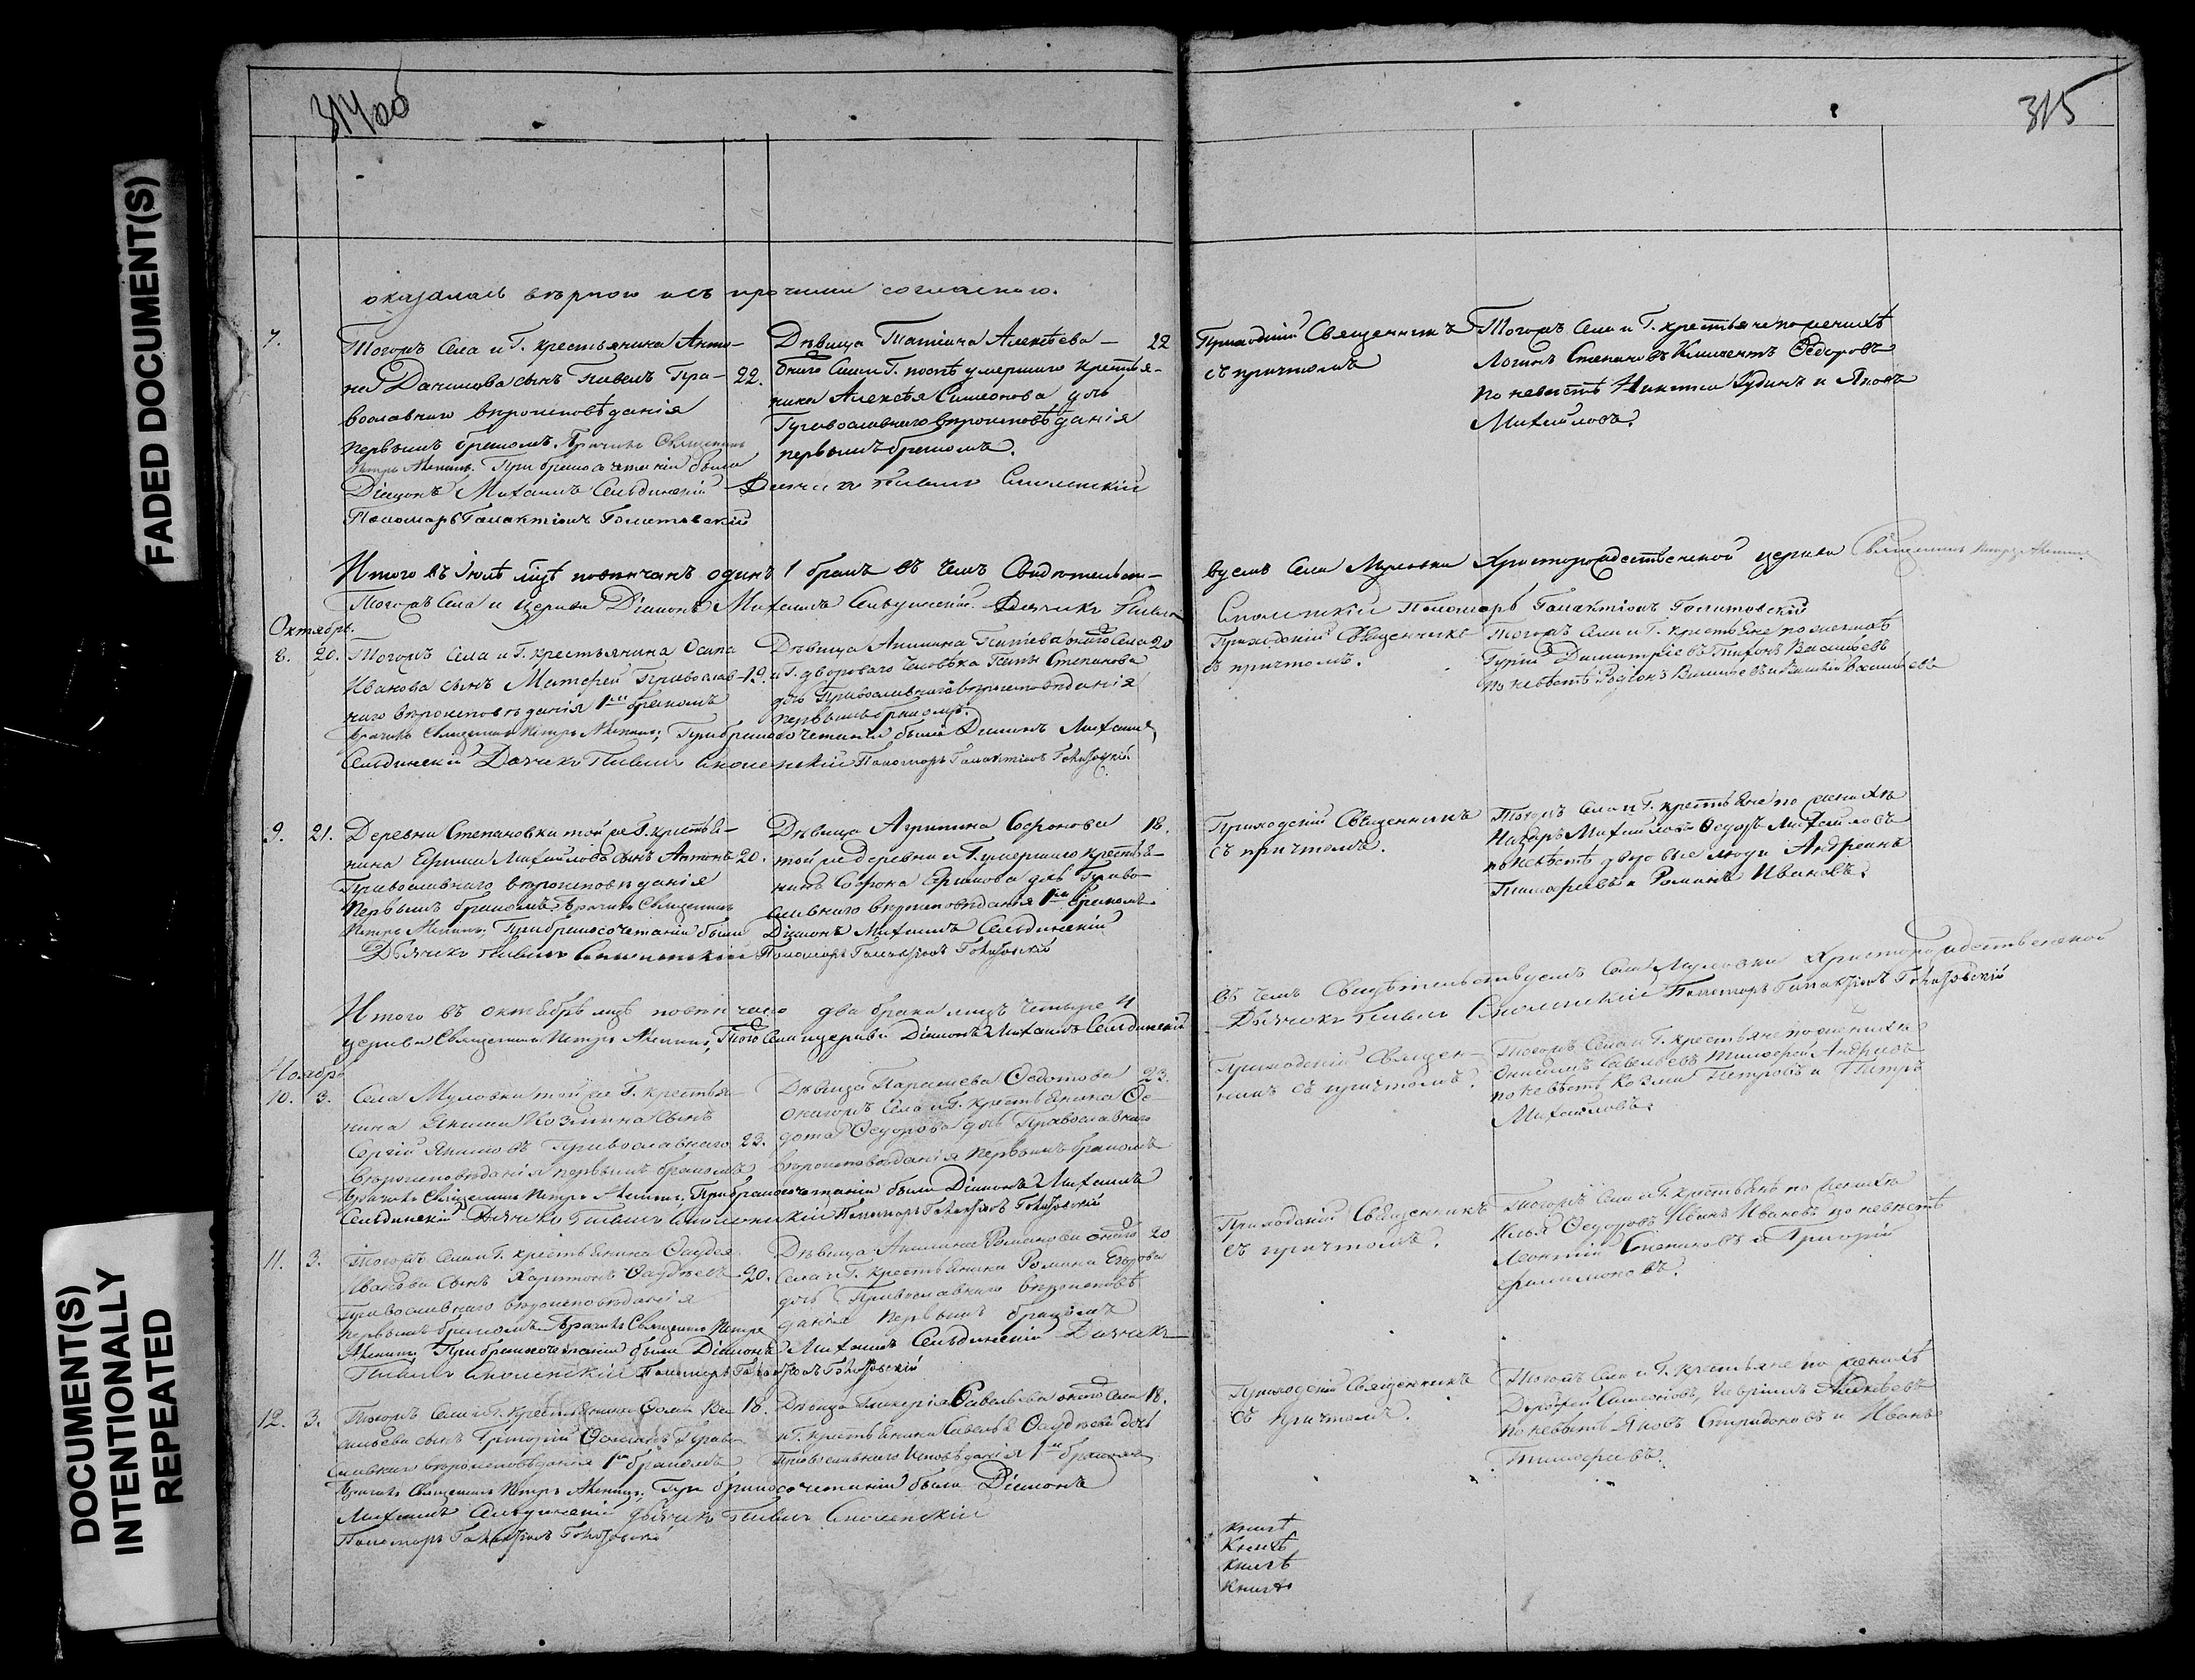 314об
315
FADED DOCUMENT(S)
DOCUMENT(S)
INTENTIONALLY
REPEATED
оказалась вѣрною и съ прочими согласною.
7.
Тогожъ Села и Г. крестьянина Анти-
па Данилова сынъ Павелъ Пра-
вославнаго вѣроисповѣданія
первымъ бракомъ. Вѣнчалъ Священникъ
Петръ При бракосочетаніи были
Діаконъ Михаилъ Сельдинскій
Пономарь Галактіонъ Голитовскій
22.
Дѣвица Татіана Алексѣева
онаго Села и Г. послѣ умершаго крестья-
нина Алексѣя Симеонова дочь
Православнаго вѣроисповѣданія
первымъ бракомъ.
Дьячекъ Павелъ Смоленскій
22
Приходскій Священникъ
съ причтомъ
Тогожъ Села и Г. крестьяне по женихѣ
Логинъ Степановъ Климентъ Ѳедоровъ
по невѣстѣ Никита Юдинъ и Яковъ
Михайловъ.
Итого въ Іюлѣ мцѣ повѣнчанъ одинъ 1 бракъ въ чемъ Свидѣтельст-
вуемъ Села Муловки Христорождественской церкви Священникъ Петръ
Тогожъ Села и Церкви Діаконъ Михаилъ Сельдинскій Дьячекъ Павелъ
Смоленскій Пономарь Галактіонъ Голитовскій
Октябрь.
8. 20.
Тогожъ Села и Г. крестьянина Осипа
Иванова сынъ Матфей Православ-
наго вѣроисповѣданія 1мъ бракомъ
Вѣнчалъ Священникъ Петръ При бракосочетаніи были Діаконъ Михаилъ
Сельдинскій Дьячекъ Павелъ Смоленскій Пономарь Галактіонъ
19.
Дѣвица онаго Села
и Г. двороваго человѣка Степанова
дочь Православнаго вѣроисповѣданія
первымъ бракомъ.
20
Приходскій Священникъ
съ причтомъ.
Тогожъ Села и Г. крестьяне по женихѣ
Гурій Димитріевъ Тихонъ Васильевъ
по невѣстѣ Родіонъ Васильевъ и Васильевъ
9. 21.
Деревни Степановки той же Г. крестья-
нина Ефима Михайлова сынъ Антонъ
Православнаго вѣроисповѣданія
Первымъ бракомъ. Вѣнчалъ Священникъ
Петръ При бракосочетаніи были Діаконъ Михаилъ Сельдинскій
Дьячекъ Павелъ Смоленскій Пономарь Галактіонъ
20.
Дѣвица Агрипина Софронова
той же деревни и Г. умершаго крестья-
нина Софрона Ефимова дочь Право-
славнаго вѣроисповѣданія 1мъ бракомъ
18.
Приходскій Священникъ
съ причтомъ.
Тогожъ Села и Г. крестьяне по женихѣ
Назаръ Михайловъ Ѳедоръ Михайловъ
по невѣстѣ дворовые люди Андреянъ
Тимофеевъ и Романъ Ивановъ.
Итого въ октябрѣ мцѣ повѣнчано два брака лицъ четыре 4
въ чемъ Свидѣтельствуемъ Села Муловки Христорождественской
церкви Священникъ Петръ Того Села и церкви Діаконъ Михаилъ Сельдинскій
Дьячекъ Павелъ Смоленскій Пономарь Галактіонъ
Ноябрь
10. 3.
Села Муловки той же Г. крестья-
нина Якима Козмина сынъ
Сергій Якимовъ Православнаго
вѣроисповѣданія первымъ бракомъ
Вѣнчалъ Священникъ Петръ При бракосочетаніи были Діаконъ Михаилъ
Сельдинскій Дьячекъ Павелъ Смоленскій Пономарь Галактіонъ
23.
Дѣвица Параскева Ѳедотова
онагожъ Села и Г. крестьянина Ѳе-
дота Ѳедорова дочь Православнаго
вѣроисповѣданія Первымъ бракомъ
23.
Приходскій Священ-
никъ съ причтомъ.
Тогожъ Села и Г. крестьяне по женихѣ
Онисимъ Савельевъ Тимофей Андреевъ
по невѣстѣ Козма Петровъ и Петръ
Михайловъ.
11. 3.
Тогожъ Села и Г. крестьянина Ѳаддея
Иванова сынъ Харитонъ Ѳаддѣевъ
Православнаго вѣроисповѣданія
первымъ бракомъ Вѣнчалъ Священникъ Петръ
При бракосочетаніи были Діаконъ Михаилъ Сельдинскій Дьячекъ
Павелъ Смоленскій Пономарь Галактіонъ
20.
Дѣвица Акилина Романова онаго
Села и Г. крестьянина Романа Егорова
дочь Православнаго вѣроисповѣ
данія Первымъ бракомъ
20
Приходскій Священникъ
съ причтомъ.
Тогожъ Села и Г. крестьяне по женихѣ
Илья Ѳедоровъ Иванъ Ивановъ по невѣстѣ
Леонтій Степановъ и Григорій
Филимоновъ.
12. 3.
Тогожъ Села и Г. крестьянина Ѳомы Ва
сильева сынъ Григорій Ѳоминъ Право
славнаго вѣроисповѣданія 1мъ бракомъ
Вѣнчалъ Священникъ Петръ При бракосочетаніи были Діаконъ
Михаилъ Сельдинскій дьячекъ Павелъ Смоленскій
Пономарь Галактіонъ
18.
Дѣвица Гликерія Савельева онаго Села
и Г. крестьянина Савелья Ѳаддѣева дочь
Православнаго исповѣданія 1мъ бракомъ
18.
Приходскій Священникъ
съ причтомъ.
Тогожъ Села и Г. крестьяне по женихѣ
Дорофей Симеоновъ, Гавріилъ
по невѣстѣ Яковъ Спиридоновъ и Иванъ
Тимофеевъ.
книгѣ
Книгѣ
книгѣ
книгѣ